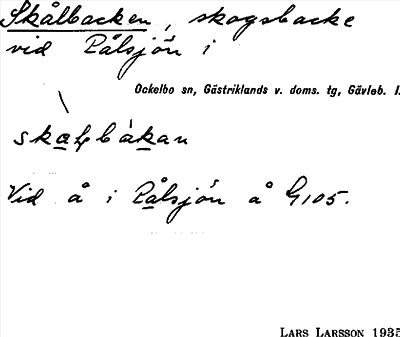 Skålbacken, skogsbacke
vid Pålsjön i
Ockelbo sn, Gästriklands v. doms. tg, Gävleb. l.
Vid å i Pålsjön å G105.
LARS LARSSON 1935